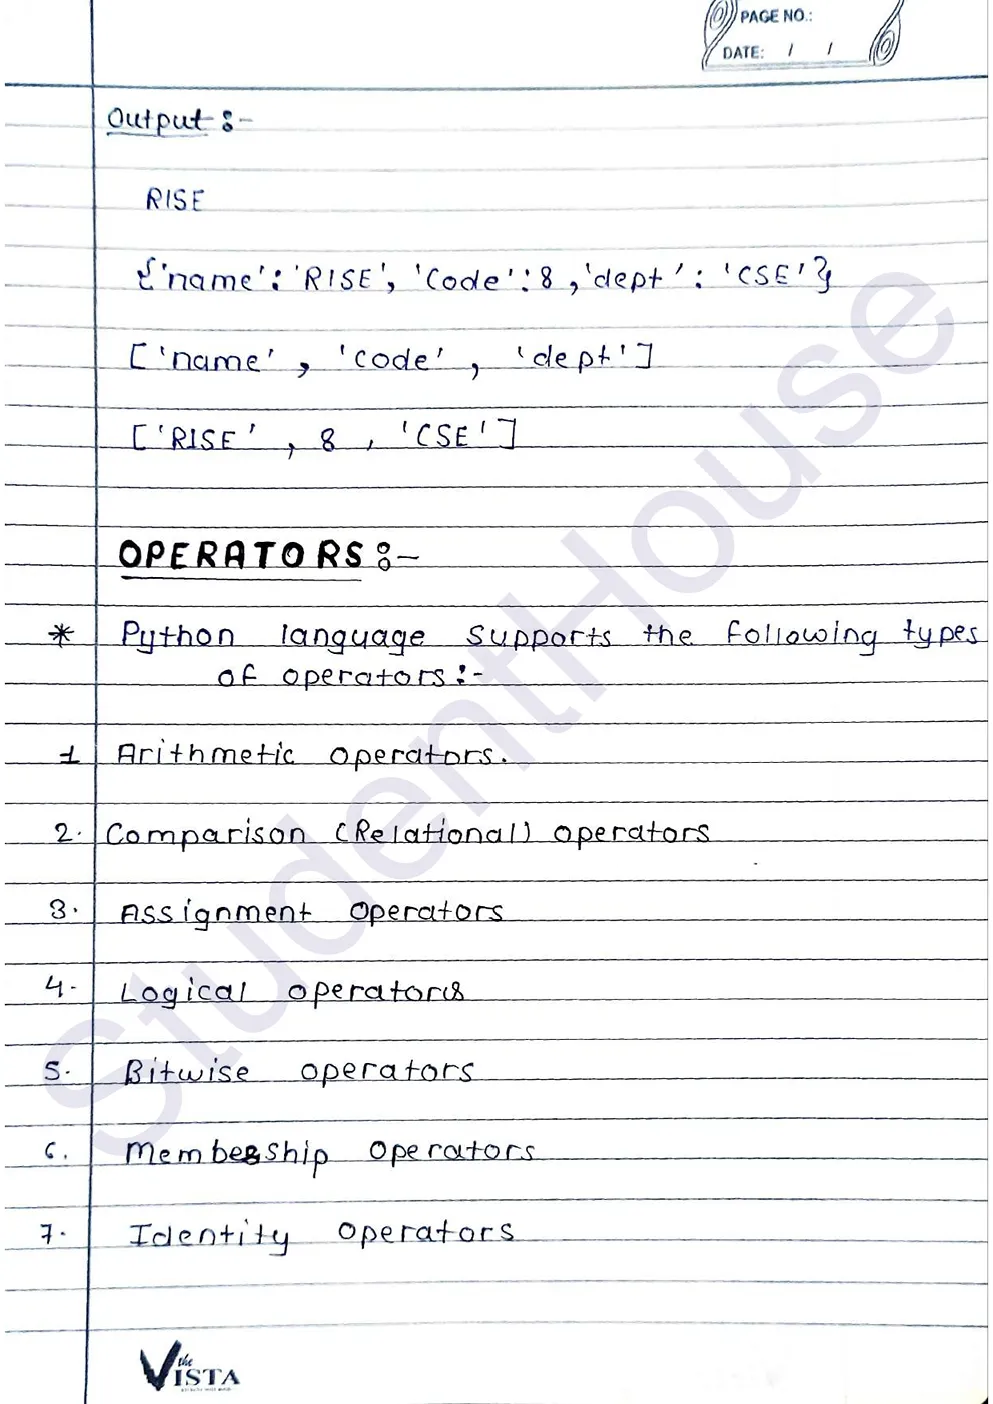 PAGE NO.:
DATE: / /
Output :-
RISE
{'name': 'RISE', 'Code': 8, 'dept': 'CSE'}
['name', 'code', 'dept']
['RISE', 8, 'CSE']
OPERATORS :-
* Python language supports the following types
of operators :-
1 Arithmetic operators.
2. Comparison (Relational) operators
3. Assignment operators
4. Logical operators
5. Bitwise operators
6. Membership operators
7. Identity operators
StudentHouse
the
VISTA